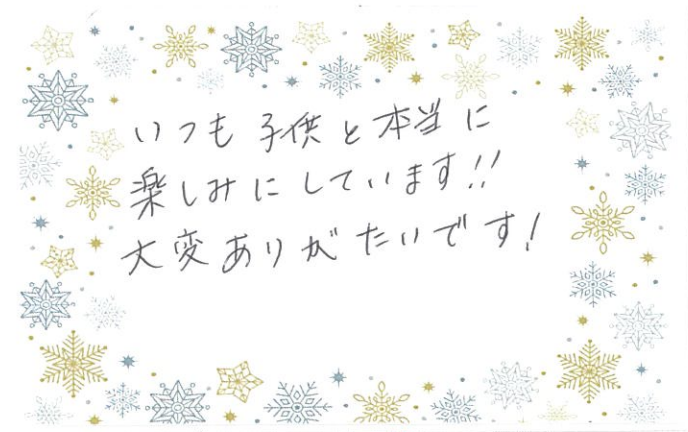 いつも子供と本当に
楽しみにしています!!
大変ありがたいです!